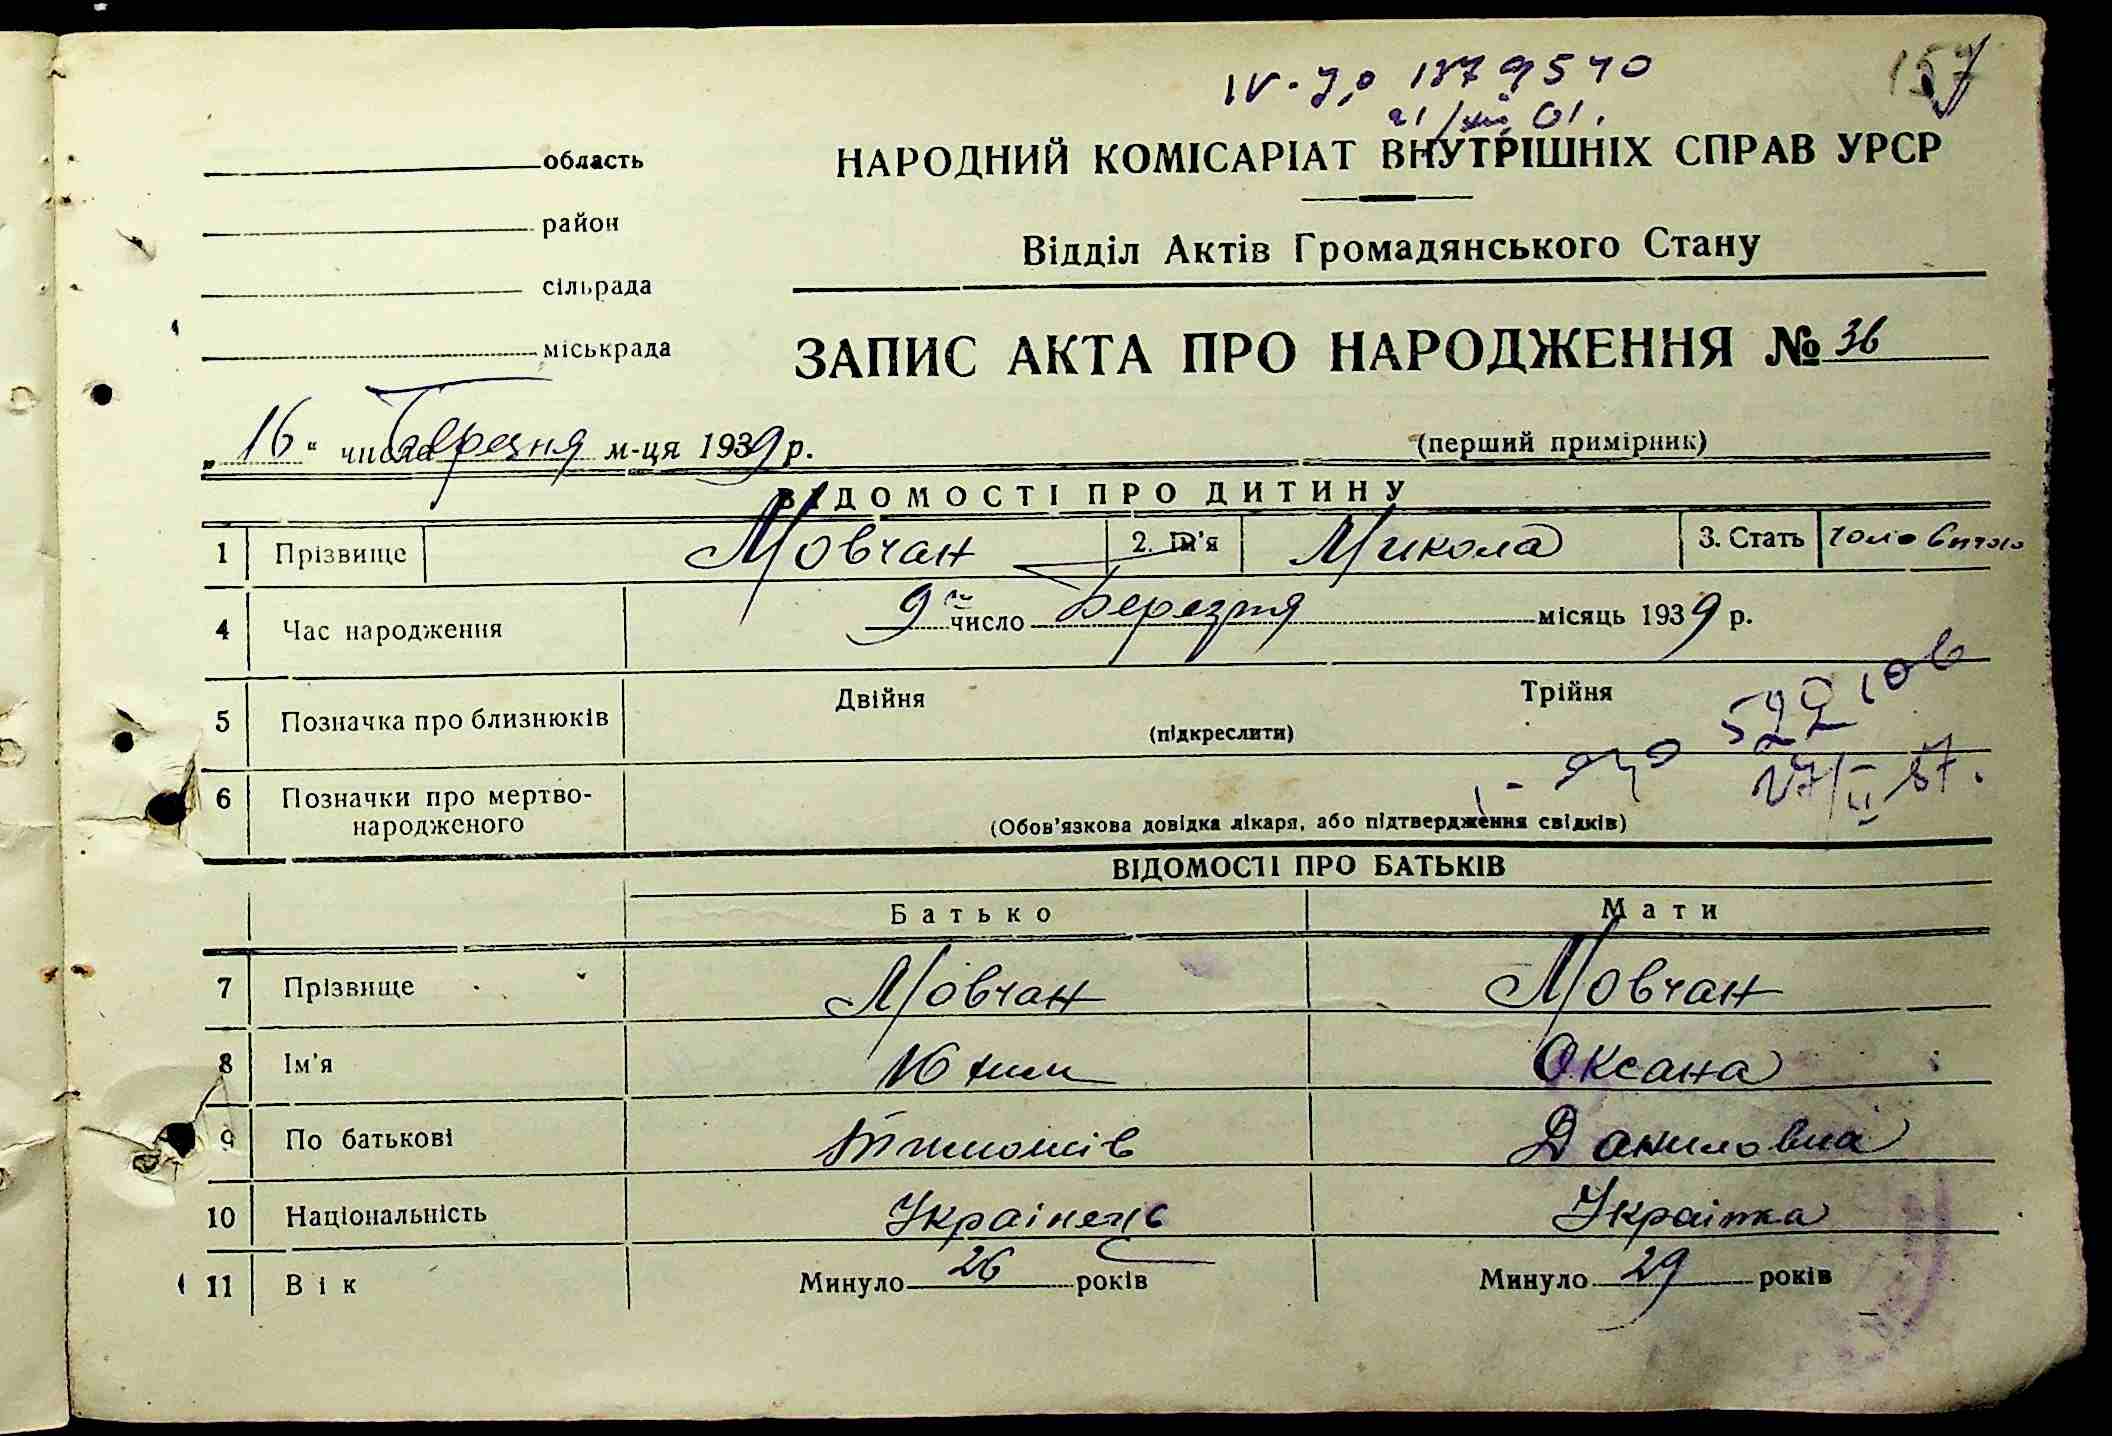 157
IV-УР 1879540
21/XII 01.
область
район
сільрада
міськрада
НАРОДНИЙ КОМІСАРІАТ ВНУТРІШНІХ СПРАВ УРСР
Відділ Актів Громадянського Стану
ЗАПИС АКТА ПРО НАРОДЖЕННЯ № 36
„16“ числа Березня м-ця 1939 р.
(перший примірник)
ВІДОМОСТІ ПРО ДИТИНУ
1 Прізвище Мовчан 2. Ім'я Микола 3. Стать
4 Час народження 9 число Березня місяць 1939 р.
5 Позначка про близнюків Двійня Трійня
(підкреслити)
522106
27/II 57.
6 Позначки про мертво-
народженого
(Обов'язкова довідка лікаря, або підтвердження свідків)
ВІДОМОСТІ ПРО БАТЬКІВ
Батько Мати
7 Прізвище Мовчан Мовчан
8 Ім'я Юхим Оксана
9 По батькові Даниловна
10 Національність Українець Українка
11 Вік Минуло 26 років Минуло 29 років